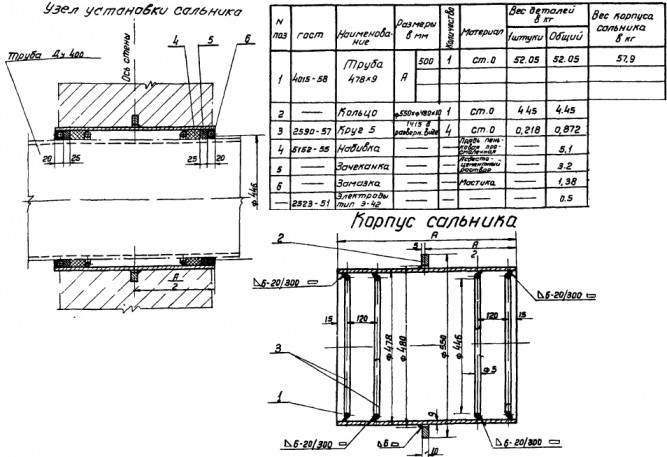 Узел установки сальника
Труба Ду 400
Ось стены
4
5
6
20
25
25
20
ф446
А
2
N поз
гост
Наименование
Размеры в мм
Количество
Материал
Вес деталей в кг
1штуки
Общий
Вес корпуса сальника в кг
1
4015-58
Труба 478×9
А
500
1
ст.0
52.05
52.05
57,9
2
—
Кольцо
ф550×ф480×10
1
ст.0
4.45
4.45
3
2590-57
Круг 5
1415 в разверн. виде
4
ст.0
0,218
0,872
4
5152-55
Набивка
—
—
Прядь пеньковая просмоленная
—
5.1
5
—
Зачеканка
—
—
Асбестоцементный раствор
—
3.2
6
—
Замазка
—
—
Мастика
—
1,38
—
2523-51
Электроды тип Э-42
—
—
—
—
0.5
Корпус сальника
А
5
А
2
2
6-20/300
6-20/300
15
120
120
15
ф478
ф480
ф550
ф446
ф5
3
1
9
6-20/300
6
10
6-20/300